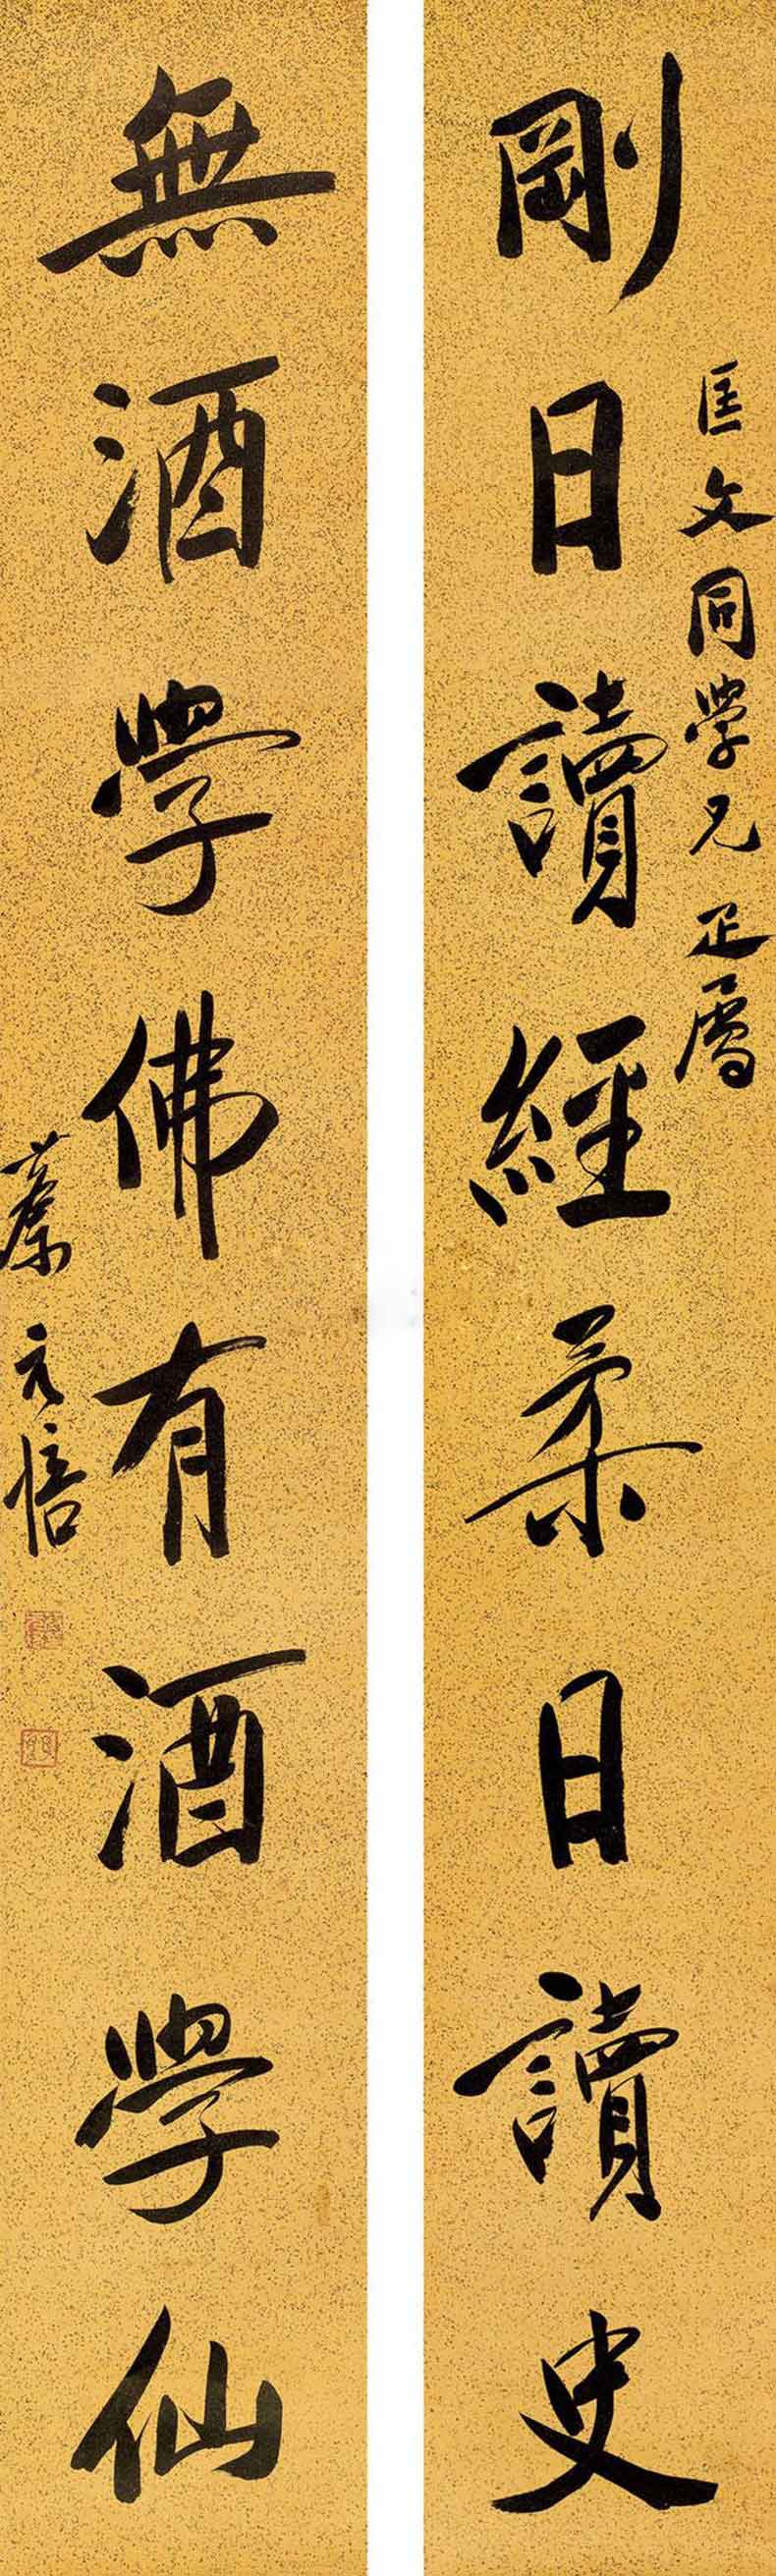 匡文同學兄 正屬
剛日讀經柔日讀史
無酒學佛有酒學仙
蔡元培